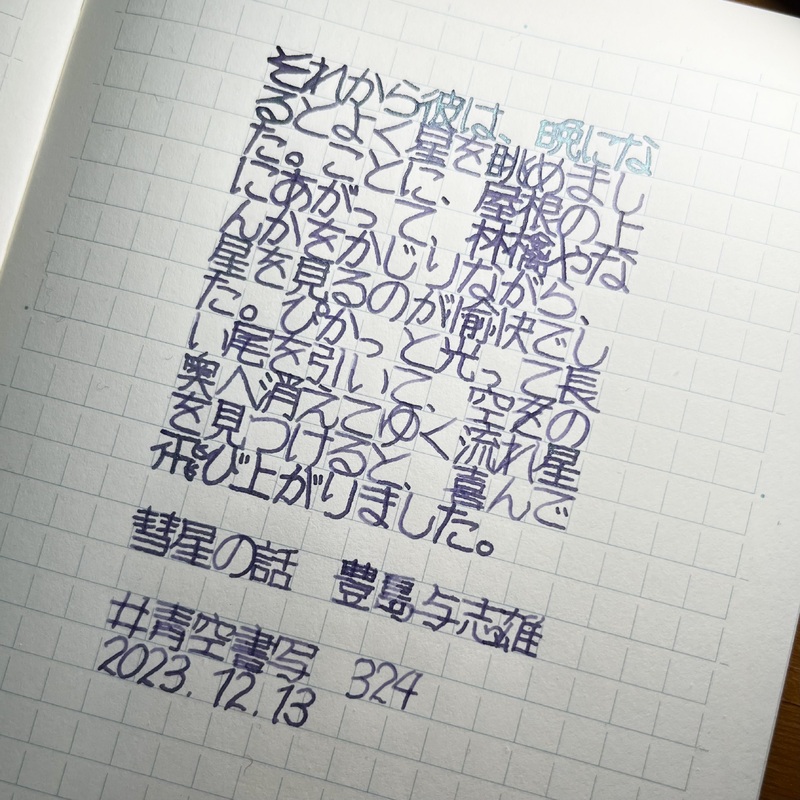 それから彼は、晩にな
るとよく星を眺めまし
た。ことに、屋根の上
にあがって、林檎やな
んかをかじりながら、
星を見るのが愉快でし
た。ぴかっと光って長
い尾を引いて、空の
奥へ消えてゆく流れ星
を見つけると、喜んで
飛び上がりました。
彗星の話 豊島与志雄
#青空書写 324
2023.12.13